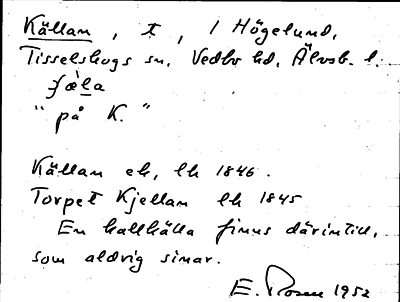 Källan, t, / Högelund,
Tisselskogs sn, Vedbo hd, Älvsb. l.
ɟæ̀la
" på K. "
Källan ek, lk 1846.
Torpet Kjellan lk 1845
En kallkälla finns därintill,
som aldrig sinar.
E. Rosen 1952